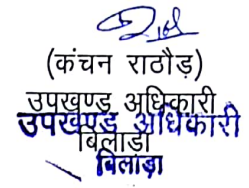 (कंचन राठौड़)
उपखण्ड अधिकारी
उपखण्ड अधिकारी
बिलाडा
बिलाड़ा